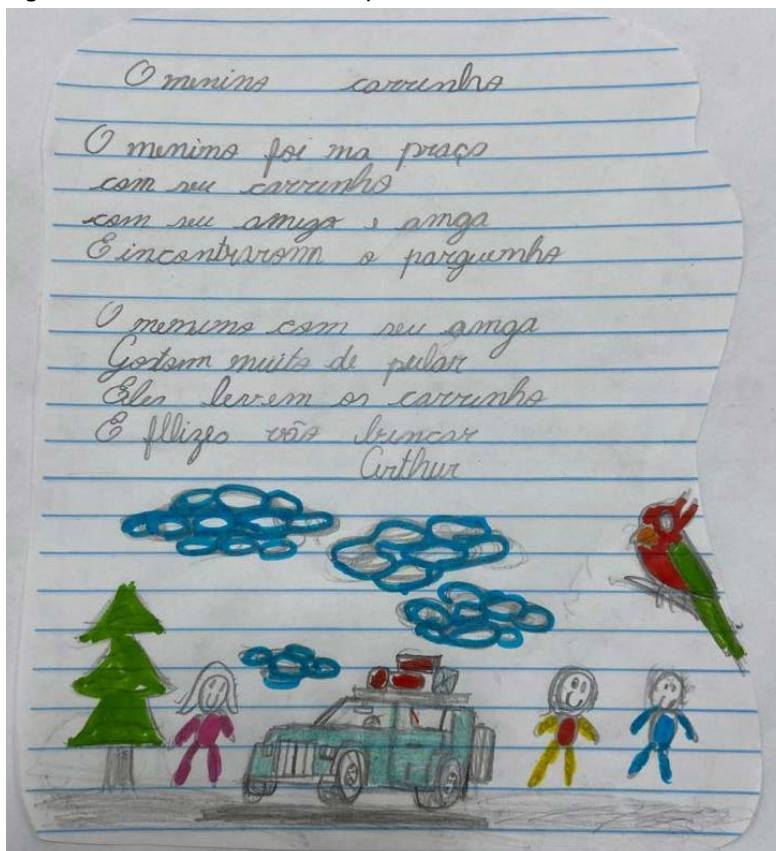 O menino carrinho
O menino foi na praça
com seu carrinho
com seu amigo e amga
E incontrarom o parguinho
O menino com seu amga
Gostam muito de pular
Eles levem os carrinho
E fllizes vão brincar
Arthur